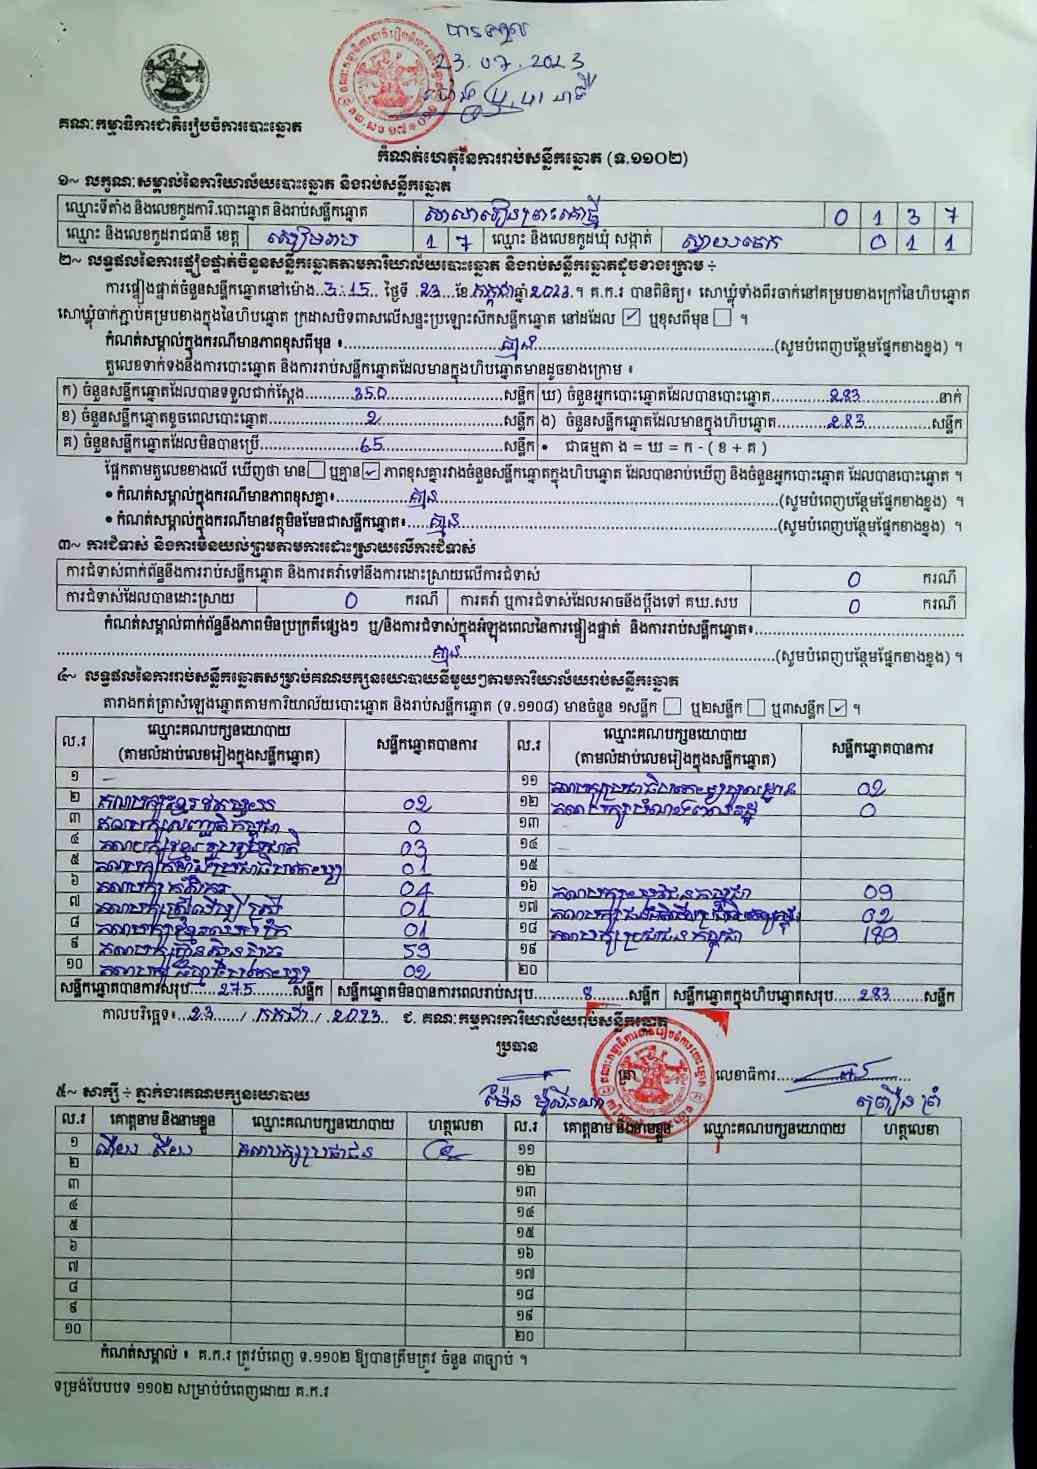 បានទទួល
23.07.2023
គណៈកម្មាធិការជាតិរៀបចំការបោះឆ្នោត
កំណត់ហេតុនៃការរាប់សន្លឹកឆ្នោត (ទ.១១០២)
១~ លក្ខណៈសម្គាល់នៃការិយាល័យបោះឆ្នោត និងរាប់សន្លឹកឆ្នោត
ឈ្មោះទីតាំង និងលេខកូដការិ.បោះឆ្នោត និងរាប់សន្លឹកឆ្នោត សាលារៀនព្រះពោធិ៍ 0 1 3 7
ឈ្មោះ និងលេខកូដរាជធានី ខេត្ត សៀមរាប 1 7 ឈ្មោះ និងលេខកូដឃុំ សង្កាត់ ស្វាយចេក 0 1 1
២~ លទ្ធផលនៃការផ្ទៀងផ្ទាត់ចំនួនសន្លឹកឆ្នោតតាមការិយាល័យបោះឆ្នោត និងរាប់សន្លឹកឆ្នោតដូចខាងក្រោម ÷
ការផ្ទៀងផ្ទាត់ចំនួនសន្លឹកឆ្នោតនៅម៉ោង..3:15.. ថ្ងៃទី .23..ខែ.កក្កដា.ឆ្នាំ.2023.។ គ.ក.រ បានពិនិត្យ៖ សោឃ្លុំទាំងពីរចាក់នៅគម្របខាងក្រៅនៃហិបឆ្នោត
សោឃ្លុំចាក់ភ្ជាប់គម្របខាងក្នុងនៃហិបឆ្នោត ក្រដាសបិទពាសលើសន្ទះប្រឡោះសឹកសន្លឹកឆ្នោត នៅដដែល ☑ ឬខុសពីមុន ☐ ។
កំណត់សម្គាល់ក្នុងករណីមានភាពខុសពីមុន ៖ គ្មាន (សូមបំពេញបន្ថែមផ្នែកខាងខ្នង) ។
តួលេខទាក់ទងនឹងការបោះឆ្នោត និងការរាប់សន្លឹកឆ្នោតដែលមានក្នុងហិបឆ្នោតមានដូចខាងក្រោម ៖
ក) ចំនួនសន្លឹកឆ្នោតដែលបានទទួលជាក់ស្ដែង 350 សន្លឹក ឃ) ចំនួនអ្នកបោះឆ្នោតដែលបានបោះឆ្នោត 283 នាក់
ខ) ចំនួនសន្លឹកឆ្នោតខូចពេលបោះឆ្នោត 2 សន្លឹក ង) ចំនួនសន្លឹកឆ្នោតដែលមានក្នុងហិបឆ្នោត 283 សន្លឹក
គ) ចំនួនសន្លឹកឆ្នោតដែលមិនបានប្រើ 65 សន្លឹក • ជាធម្មតា ង = ឃ = ក - ( ខ + គ )
ផ្អែកតាមតួលេខខាងលើ ឃើញថា មាន ☐ ឬគ្មាន ☑ ភាពខុសគ្នារវាងចំនួនសន្លឹកឆ្នោតក្នុងហិបឆ្នោត ដែលបានរាប់ឃើញ និងចំនួនអ្នកបោះឆ្នោត ដែលបានបោះឆ្នោត ។
• កំណត់សម្គាល់ក្នុងករណីមានភាពខុសគ្នា៖ គ្មាន (សូមបំពេញបន្ថែមផ្នែកខាងខ្នង) ។
• កំណត់សម្គាល់ក្នុងករណីមានវត្ថុមិនមែនជាសន្លឹកឆ្នោត៖ គ្មាន (សូមបំពេញបន្ថែមផ្នែកខាងខ្នង) ។
៣~ ការជំទាស់ និងការមិនយល់ព្រមតាមការដោះស្រាយលើការជំទាស់
ការជំទាស់ពាក់ព័ន្ធនឹងការរាប់សន្លឹកឆ្នោត និងការតវ៉ាទៅនឹងការដោះស្រាយលើការជំទាស់ 0 ករណី
ការជំទាស់ដែលបានដោះស្រាយ 0 ករណី ការតវ៉ា ឬការជំទាស់ដែលអាចនឹងប្ដឹងទៅ គឃ.សប 0 ករណី
កំណត់សម្គាល់ពាក់ព័ន្ធនឹងភាពមិនប្រក្រតីផ្សេងៗ ឬ/និងការជំទាស់ក្នុងអំឡុងពេលនៃការផ្ទៀងផ្ទាត់ និងការរាប់សន្លឹកឆ្នោត៖
គ្មាន (សូមបំពេញបន្ថែមផ្នែកខាងខ្នង) ។
៤~ លទ្ធផលនៃការរាប់សន្លឹកឆ្នោតសម្រាប់គណបក្សនយោបាយនីមួយៗតាមការិយាល័យរាប់សន្លឹកឆ្នោត
តារាងកត់ត្រាសំឡេងឆ្នោតតាមការិយាល័យបោះឆ្នោត និងរាប់សន្លឹកឆ្នោត (ទ.១១០៨) មានចំនួន ១សន្លឹក ☐ ឬ២សន្លឹក ☐ ឬ៣សន្លឹក ☑ ។
ល.រ ឈ្មោះគណបក្សនយោបាយ (តាមលំដាប់លេខរៀងក្នុងសន្លឹកឆ្នោត) សន្លឹកឆ្នោតបានការ ល.រ ឈ្មោះគណបក្សនយោបាយ (តាមលំដាប់លេខរៀងក្នុងសន្លឹកឆ្នោត) សន្លឹកឆ្នោតបានការ
១ — ១១ គណបក្សប្រជាធិបតេយ្យមូលដ្ឋាន 02
២ 02 ១២ 0
៣ គណបក្សសញ្ជាតិកម្ពុជា 0 ១៣
៤ គណបក្សខ្មែររួបរួមជាតិ 03 ១៤
៥ 01 ១៥
៦ គណបក្សកសិករ 04 ១៦ គណបក្សយុវជនកម្ពុជា 09
៧ គណបក្សស្ត្រីដើម្បីស្ត្រី 01 ១៧ 02
៨ 01 ១៨ គណបក្សប្រជាជនកម្ពុជា 189
៩ គណបក្សហ្វ៊ុនស៊ិនប៉ិច 59 ១៩
១០ 02 ២០
សន្លឹកឆ្នោតបានការសរុប 275 សន្លឹក សន្លឹកឆ្នោតមិនបានការពេលរាប់សរុប 8 សន្លឹក សន្លឹកឆ្នោតក្នុងហិបឆ្នោតសរុប 283 សន្លឹក
កាលបរិច្ឆេទ៖ 23 / កក្កដា / 2023 ជ. គណៈកម្មការការិយាល័យរាប់សន្លឹកឆ្នោត
ប្រធាន
ត្រា លេខាធិការ
៥~ សាក្សី ÷ ភ្នាក់ងារគណបក្សនយោបាយ
ល.រ គោត្តនាម និងនាមខ្លួន ឈ្មោះគណបក្សនយោបាយ ហត្ថលេខា ល.រ គោត្តនាម និងនាមខ្លួន ឈ្មោះគណបក្សនយោបាយ ហត្ថលេខា
១ គណបក្សប្រជាជន ១១
២ ១២
៣ ១៣
៤ ១៤
៥ ១៥
៦ ១៦
៧ ១៧
៨ ១៨
៩ ១៩
១០ ២០
កំណត់សម្គាល់ ៖ គ.ក.រ ត្រូវបំពេញ ទ.១១០២ ឱ្យបានត្រឹមត្រូវ ចំនួន ៣ច្បាប់ ។
ទម្រង់បែបបទ ១១០២ សម្រាប់បំពេញដោយ គ.ក.រ